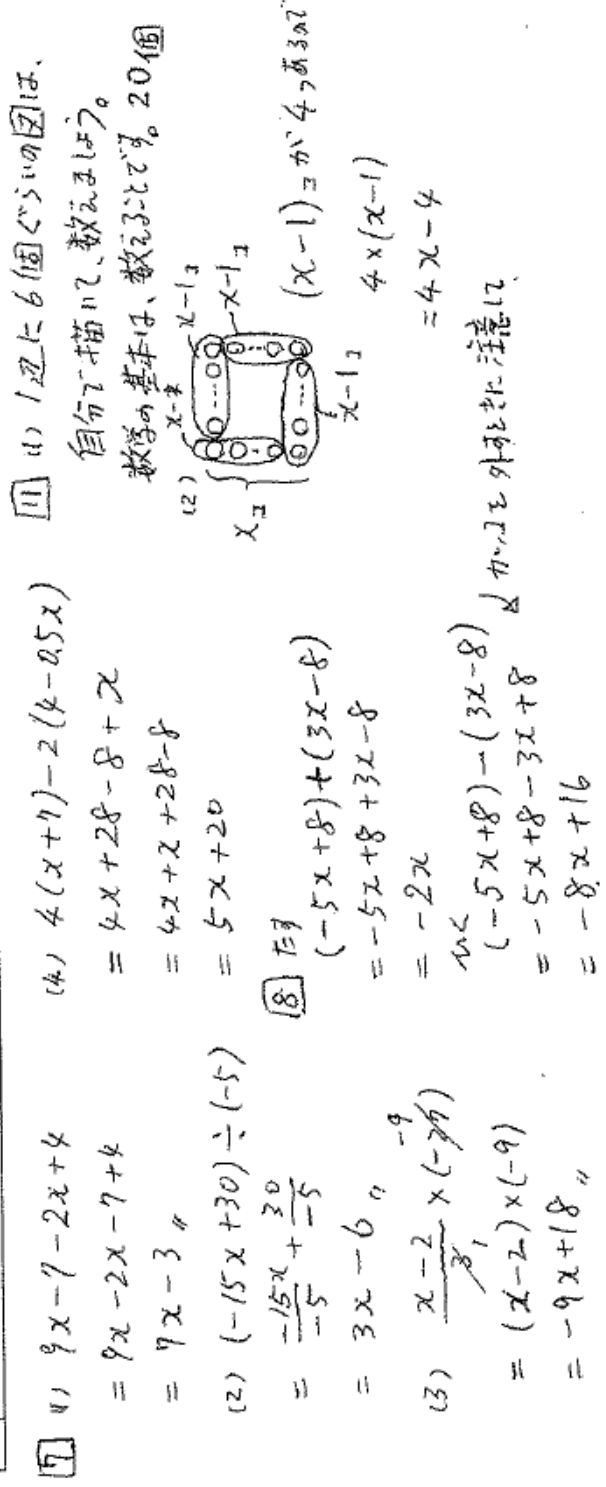 7 (1) 9x-7-2x+4
= 9x-2x-7+4
= 7x-3 〃
(2) (-15x+30)÷(-5)
= \frac{-15x}{-5} + \frac{30}{-5}
= 3x-6 〃
(3) \frac{x-2}{3}×(-27)
1 -9
= (x-2)×(-9)
= -9x+18 〃
(4) 4(x+7)-2(4-0.5x)
= 4x+28-8+x
= 4x+x+28-8
= 5x+20
8 たす
(-5x+8)+(3x-8)
= -5x+8+3x-8
= -2x
ひく
(-5x+8)-(3x-8)
↓カッコを外すときに注意して、
= -5x+8-3x+8
= -8x+16
11 (1) 1辺に6個ぐらいの図は、
自分で描いて、数えましょう。
数学の基本は、数えることです。20個
(2)
xコ
x-1コ
x-1コ
x-1コ
(x-1)コが4つあるので
4×(x-1)
=4x-4